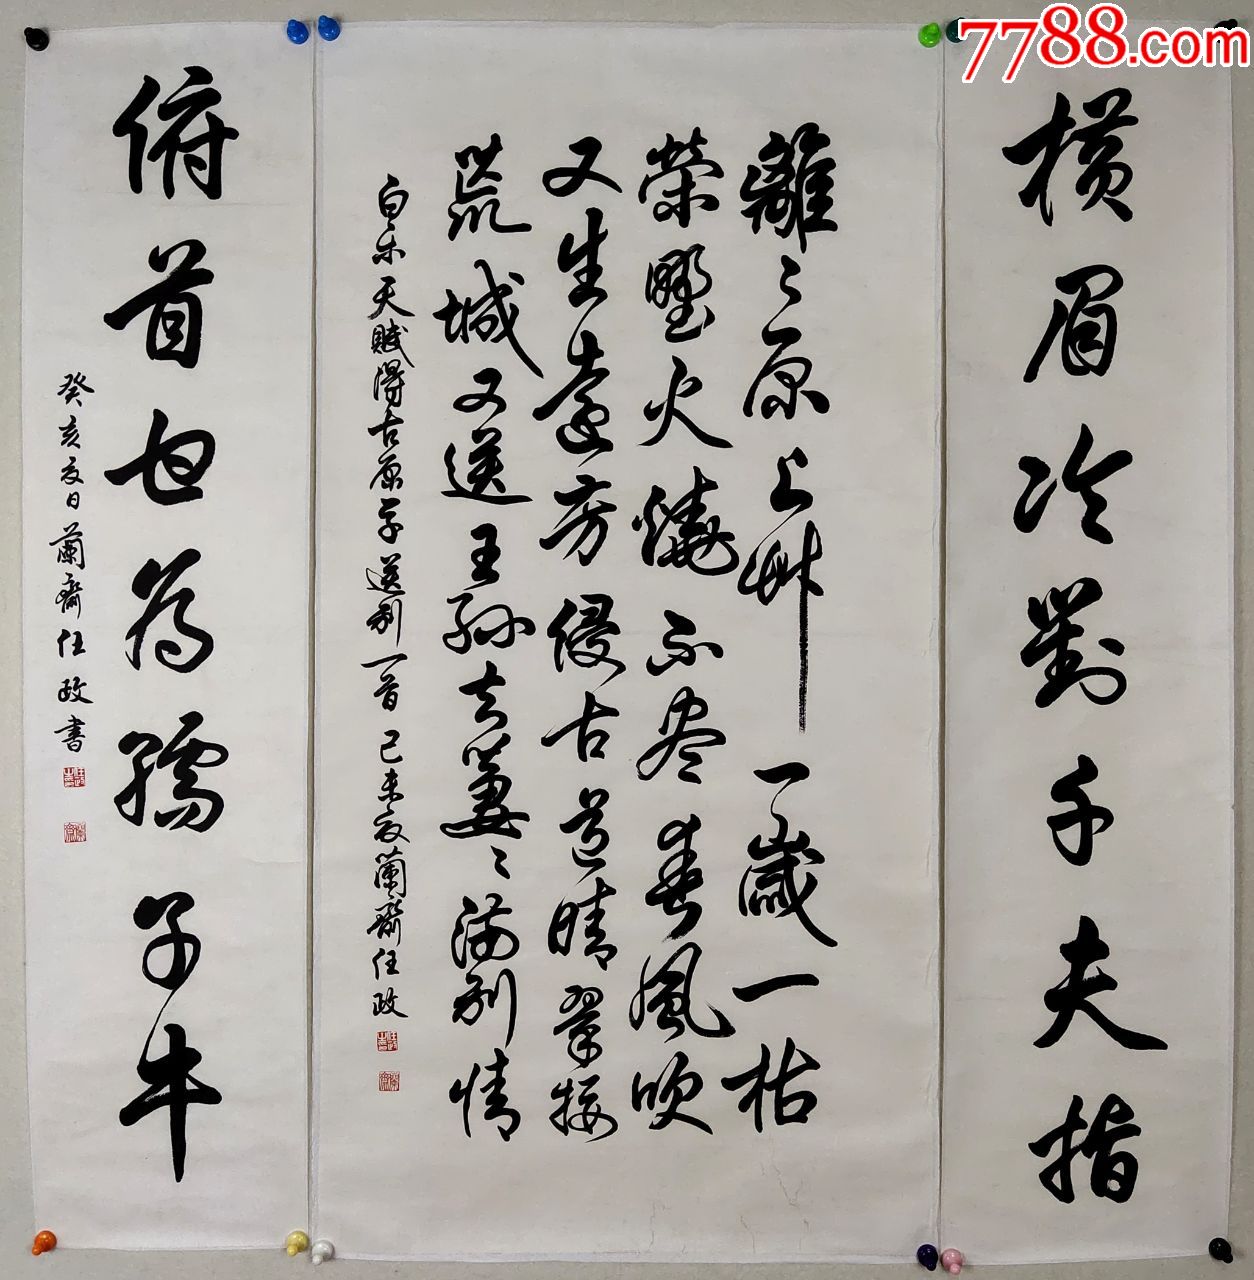 7788.com
横眉冷對千夫指
離〻原上艸一歲一枯
榮野火燒不盡春風吹
又生遠芳侵古道晴翠接
荒城又送王孫去萋〻滿別情
白乐天賦得古原草送別一首 己未夏蘭齋任政
俯首甘為孺子牛
癸亥夏日蘭齋任政書